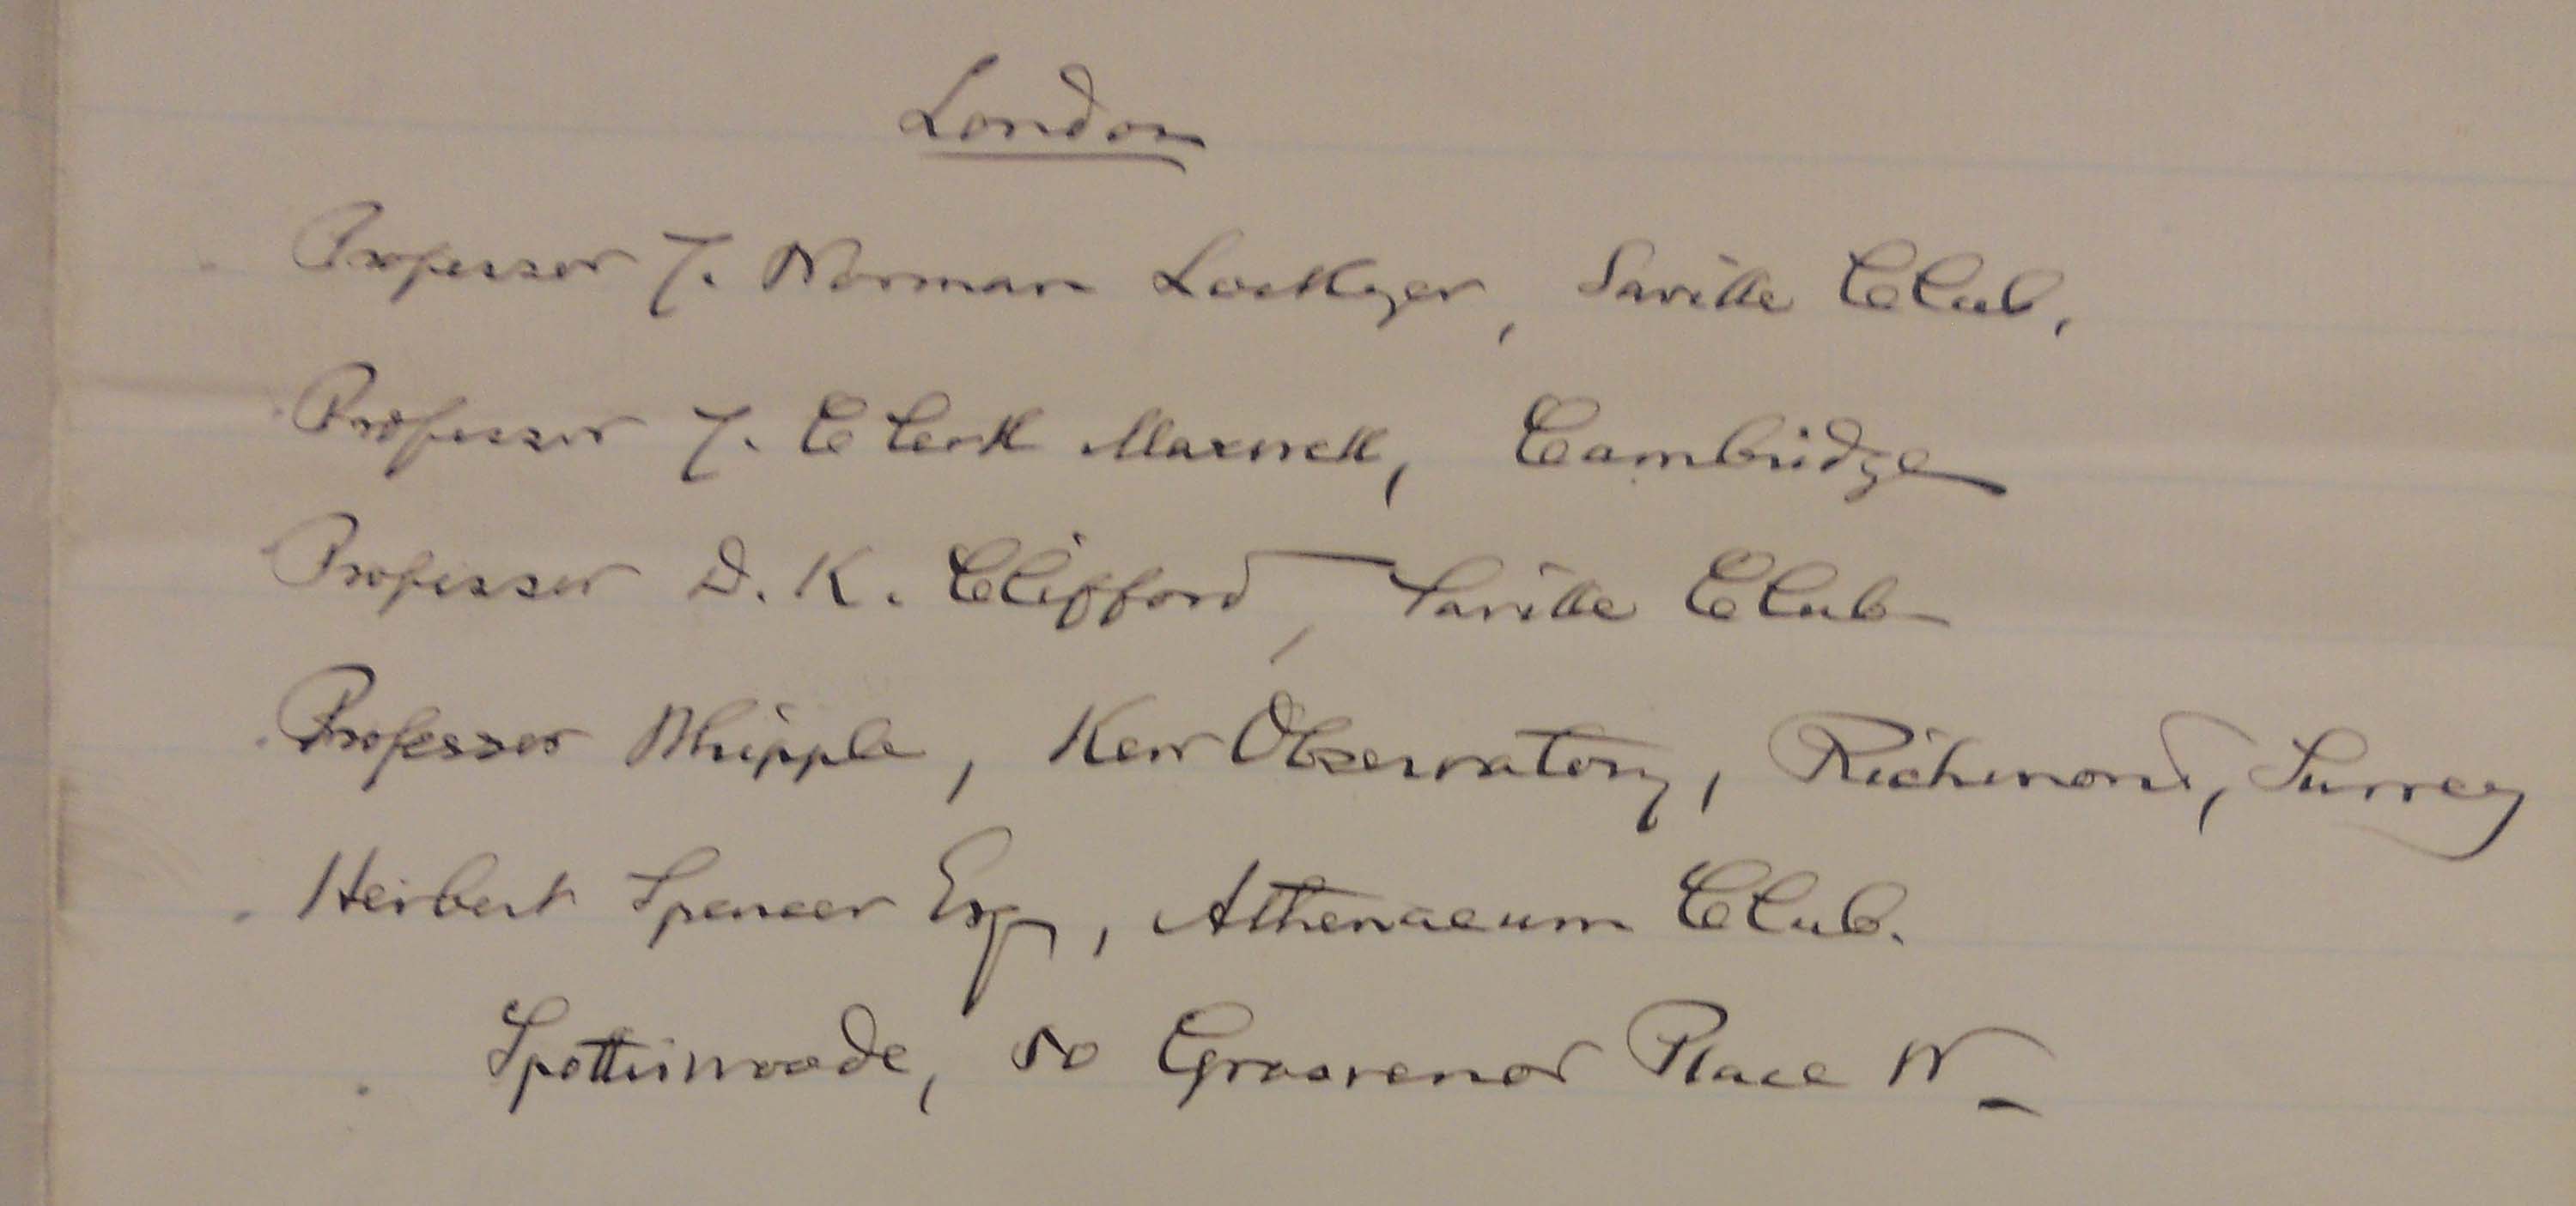 London
Professor J. Norman Lockyer, Saville Club,
Professor J. Clerk Maxwell, Cambridge
Professor D. K. Clifford, Saville Club
Professor Whipple, Kew Observatory, Richmond, Surrey
Herbert Spencer Esq, Athenaeum Club.
Spottiswoode, 50 Grosvenor Place W